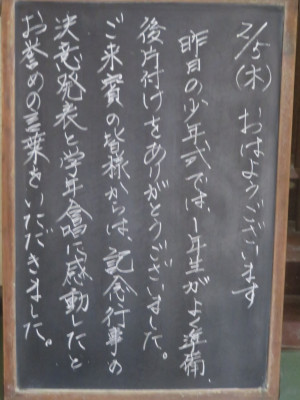 2/5(木) おはようございます
昨日の少年式では、1年生がよく準備、
後片付けをありがとうございました。
ご来賓の皆様からは、記念行事の
決意発表と学年合唱に感動したと
お誉めの言葉をいただきました。